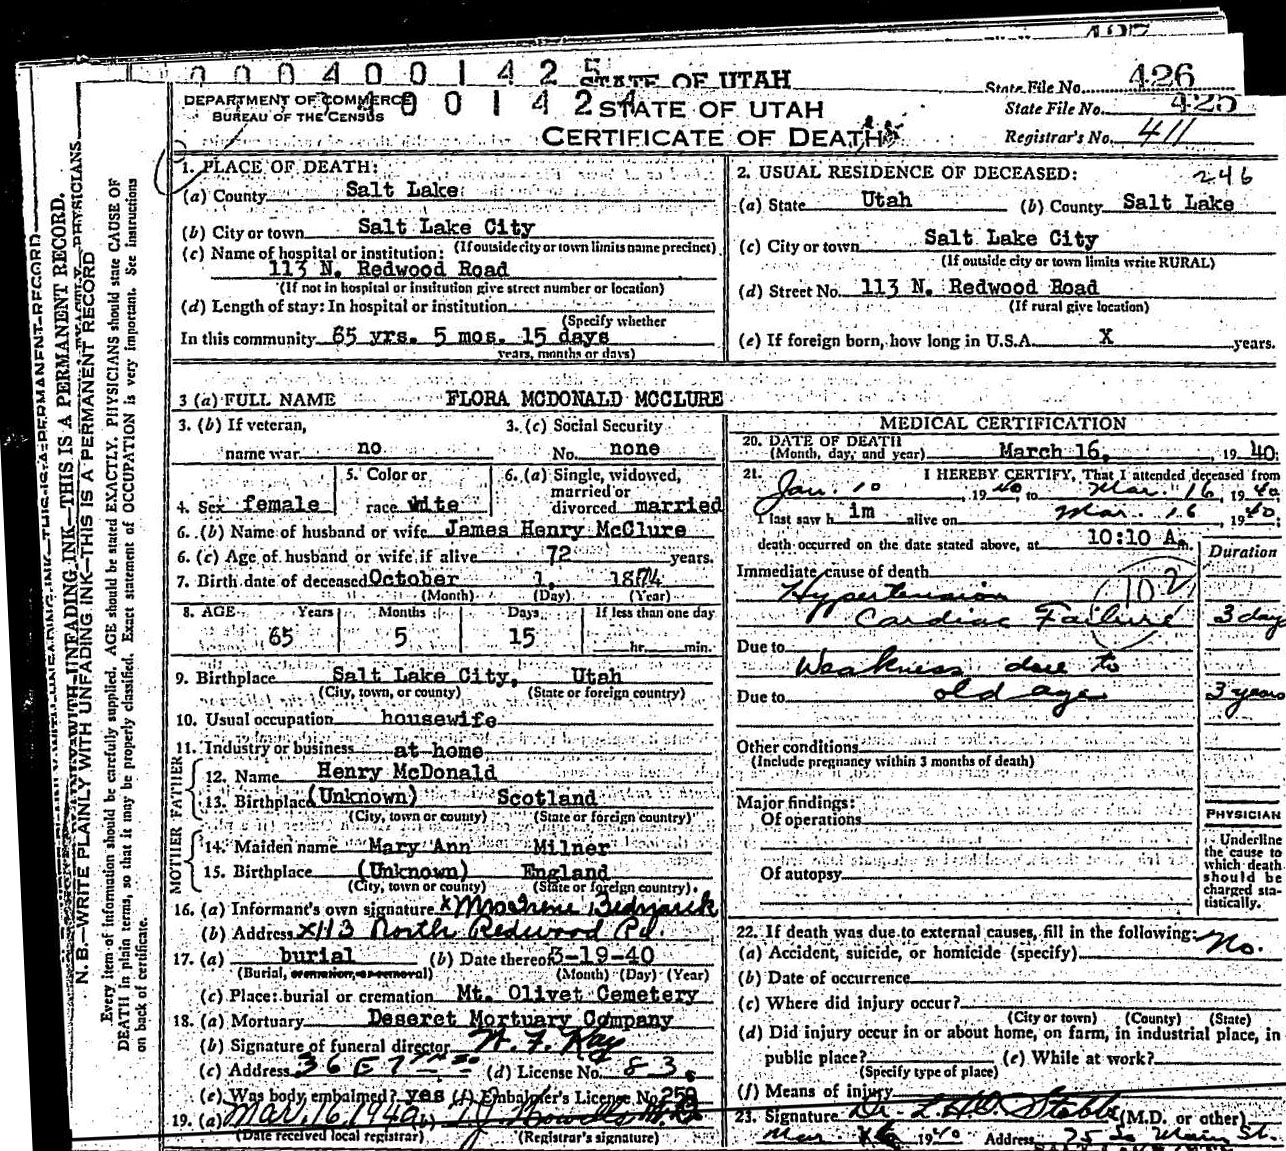 427
0 0 0 4 0 0 1 4 2 5 STATE OF UTAH
State File No. 426
DEPARTMENT OF COMMERCE
BUREAU OF THE CENSUS
4 0 0 1 4 2 4 STATE OF UTAH
State File No. 425
CERTIFICATE OF DEATH
Registrar's No. 411
N. B.—WRITE PLAINLY WITH UNFADING INK—THIS IS A PERMANENT RECORD
Every item of information should be carefully supplied. AGE should be stated EXACTLY. PHYSICIANS should state CAUSE OF
DEATH in plain terms, so that it may be properly classified. Exact statement of OCCUPATION is very important. See instructions
on back of certificate.
1. PLACE OF DEATH:
(a) County Salt Lake
(b) City or town Salt Lake City
(If outside city or town limits name precinct)
(c) Name of hospital or institution:
113 N. Redwood Road
(If not in hospital or institution give street number or location)
(d) Length of stay: In hospital or institution
(Specify whether
In this community 65 yrs. 5 mos. 15 days
years, months or days)
2. USUAL RESIDENCE OF DECEASED: 246
(a) State Utah (b) County Salt Lake
(c) City or town Salt Lake City
(If outside city or town limits write RURAL)
(d) Street No. 113 N. Redwood Road
(If rural give location)
(e) If foreign born, how long in U.S.A. X years.
3 (a) FULL NAME FLORA MCDONALD MCCLURE
3. (b) If veteran,
name war no
3. (c) Social Security
No. none
4. Sex female
5. Color or
race white
6. (a) Single, widowed,
married or
divorced married
6. (b) Name of husband or wife James Henry McClure
6. (c) Age of husband or wife if alive 72 years.
7. Birth date of deceased October 1, 1874
(Month) (Day) (Year)
8. AGE Years Months Days If less than one day
65 5 15 hr. min.
9. Birthplace Salt Lake City, Utah
(City, town, or county) (State or foreign country)
10. Usual occupation housewife
11. Industry or business at home
FATHER
12. Name Henry McDonald
13. Birthplace (Unknown) Scotland
(City, town or county) (State or foreign country)
MOTHER
14. Maiden name Mary Ann Milner
15. Birthplace (Unknown) England
(City, town or county) (State or foreign country).
16. (a) Informant's own signature x Mrs Irene Bednarik
(b) Address x 113 North Redwood Rd.
17. (a) burial (b) Date thereof 3-19-40
(Burial, cremation, or removal) (Month) (Day) (Year)
(c) Place: burial or cremation Mt. Olivet Cemetery
18. (a) Mortuary Deseret Mortuary Company
(b) Signature of funeral director W. F. Kay
(c) Address 36 E 7 (d) License No. 83
(e) Was body embalmed? yes (f) Embalmer's License No. 258
19. (a) Mar. 16 1940
(Date received local registrar) (Registrar's signature)
MEDICAL CERTIFICATION
20. DATE OF DEATH
(Month, day, and year) March 16, 19 40
21. I HEREBY CERTIFY, That I attended deceased from
Jan. 10, 19 40 to Mar. 16, 19 40
I last saw h im alive on Mar. 16, 19 40;
death occurred on the date stated above, at 10:10 A m.
Duration
Immediate cause of death
Hypertension 102
Cardiac Failure 3 days
Due to Weakness due to
Due to old age 3 years
Other conditions
(Include pregnancy within 3 months of death)
Major findings:
Of operations
Of autopsy
PHYSICIAN
Underline
the cause to
which death
should be
charged sta-
tistically.
22. If death was due to external causes, fill in the following: No.
(a) Accident, suicide, or homicide (specify)
(b) Date of occurrence
(c) Where did injury occur?
(City or town) (County) (State)
(d) Did injury occur in or about home, on farm, in industrial place, in
public place? (e) While at work?
(Specify type of place)
(f) Means of injury
23. Signature Dr. (M.D. or other)
Mar. 16 19 40 Address 75 So Main St.